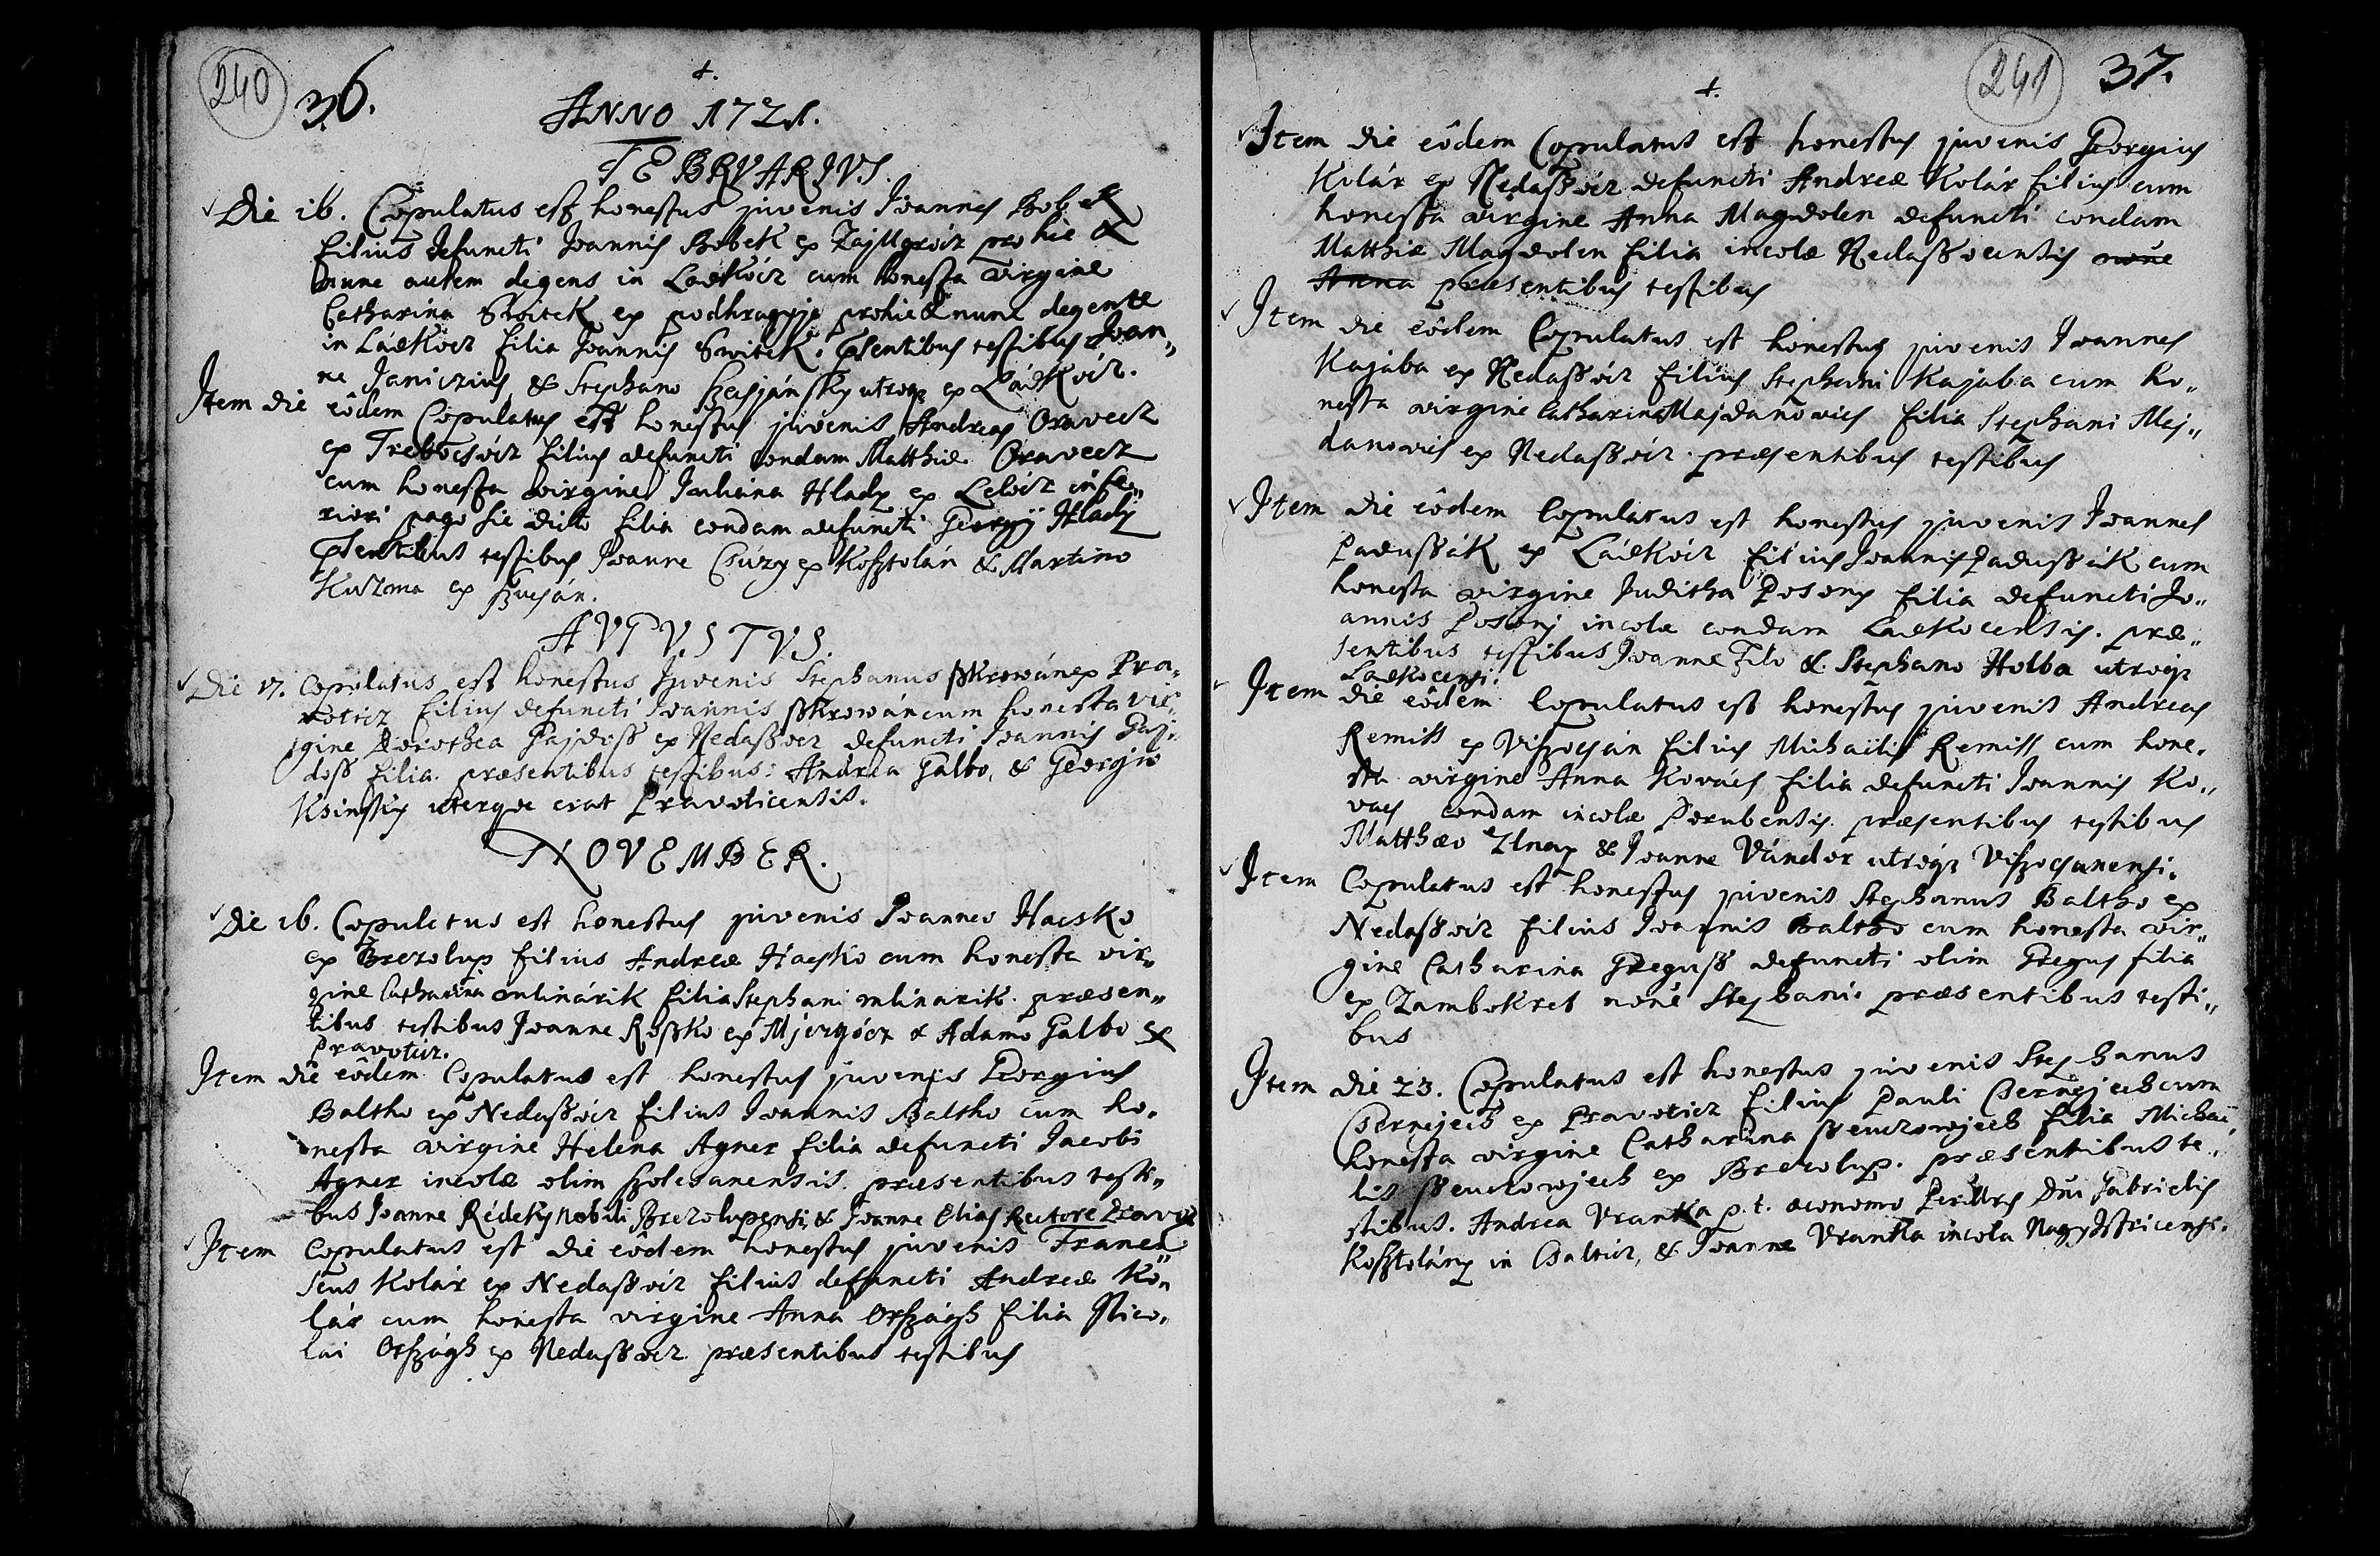 240 36.
+.
ANNO 1721.
FEBRVARIVS.
Die 16. Copulatus est honestus juvenis Joannes Bobek
filius defuncti Joannis Bobek ex prohic &
nunc autem degens in Ladkócz cum honesta virgine
Catharina Switek ex podhragyje prohic & nunc degente
in Ládkócz filia Joannis Switek. Psentibus testibus Joan„
ne Janiczius & Stephano utroq ex Ládkócz.
Item die eôdem Copulatus est honestus juvenis Andreas Oravecz
ex filius defuncti condam Matthiæ Oravecz
cum honesta virgine Juliana Hlady ex Lelócz infe„
riori pago sic dicto filia condam defuncti Georgÿ Hlady
Psentibus testibus Joanne Csúzy ex Kosztolán & Martino
Kuzma ex
AVGVSTVS.
Die 17. Copulatus est honestus Juvenis Stephanus Skrowán ex Pra„
voticz filius defuncti Joannis Skrowán cum honesta vir„
gine Dorothea Gajdoß ex Nedaßocz defuncti Joannis Gaj„
doß filia. præsentibus testibus: Andrea Galbo, & Georgio
Ksinsky uterque erat Pravoticensis.
NOVEMBER.
Die 16. Copulatus est honestus juvenis Joannes Hacsko
ex Brezolup filius Andreæ Hacsko cum honesta vir„
gine Catharina mlinárik filia Stephani mlinarik. præsen„
tibus testibus Joanne Roßko ex Mjergócz & Adamo Galbo ex
Pravoticz.
Item die eôdem Copulatus est honestus juvenis Georgius
Baltho ex Nedaßócz filius Joannis Baltho cum ho„
nesta virgine Helena Agner filia defuncti Jacobi
Agner incolæ olim szolcsanensis. præsentibus testi„
bus Joanne Rédeky Nobili Brezolupensi, & Joanne Elias Rectore
Item Copulatus est die eôdem honestus juvenis Franci„
scus Kolár ex Nedaßócz filius defuncti Andreæ Ko„
lár cum honesta virgine Anna Országh filia Nico„
lai Országh ex Nedaßócz præsentibus testibus
241 37.
+.
Item die eôdem Copulatus est honestus juvenis Georgius
Kolár ex Nedaßócz defuncti Andreæ Kolár filius cum
honesta virgine Anna Magdolen defuncti condam
Matthiæ Magdolen filia incolæ Nedaßocensis noñe
Anna præsentibus testibus
Item die eôdem Copulatus est honestus juvenis Joannes
Kajaba ex Nedaßócz filius Stephani Kajaba cum ho„
nesta virgine Catharina Majdanovics filia Stephani Maj„
danovics ex Nedaßócz. præsentibus testibus
Item die eôdem Copulatus est honestus juvenis Joannes
Padußák ex Ládkócz filius Joannis Padußák cum
honesta virgine Juditha Posony filia defuncti Jo„
annis Posonj incolæ condam Ladkocensis. præ„
sentibus testibus Joanne Filo & Stephano Holba utroqz
Ladkocensi.
Item die eôdem Copulatus est honestus juvenis Andreas
Remiss ex Viszocsán filius Michaëlis Remiss cum hone„
sta virgine Anna Kovács filia defuncti Joannis Ko„
vacs condam incolæ Porubensis. præsentibus testibus
Matthæo & Joanne Vándor utroqz Viszocsanensi.
Item Copulatus est honestus juvenis Stephanus Baltho ex
Nedaßócz filius Joannis Baltho cum honesta vir„
gine Catharina Greguß defuncti olim Gregus filia
ex Zambokret noñe Stephani. præsentibus testi„
bus
Item die 23. Copulatus est honestus juvenis Stephanus
Csernejech ex Pravoticz filius Pauli Csernejech cum
honesta virgine Catharina ßeuczowjech filia Michaë„
lis ßeuczowjech ex Brezolup. præsentibus te„
stibus. Andrea Vranka p. t. œconomo Dñi Gabrielis
Kosztolány in & Joanne Vranka incola Nagy Isztricensi.